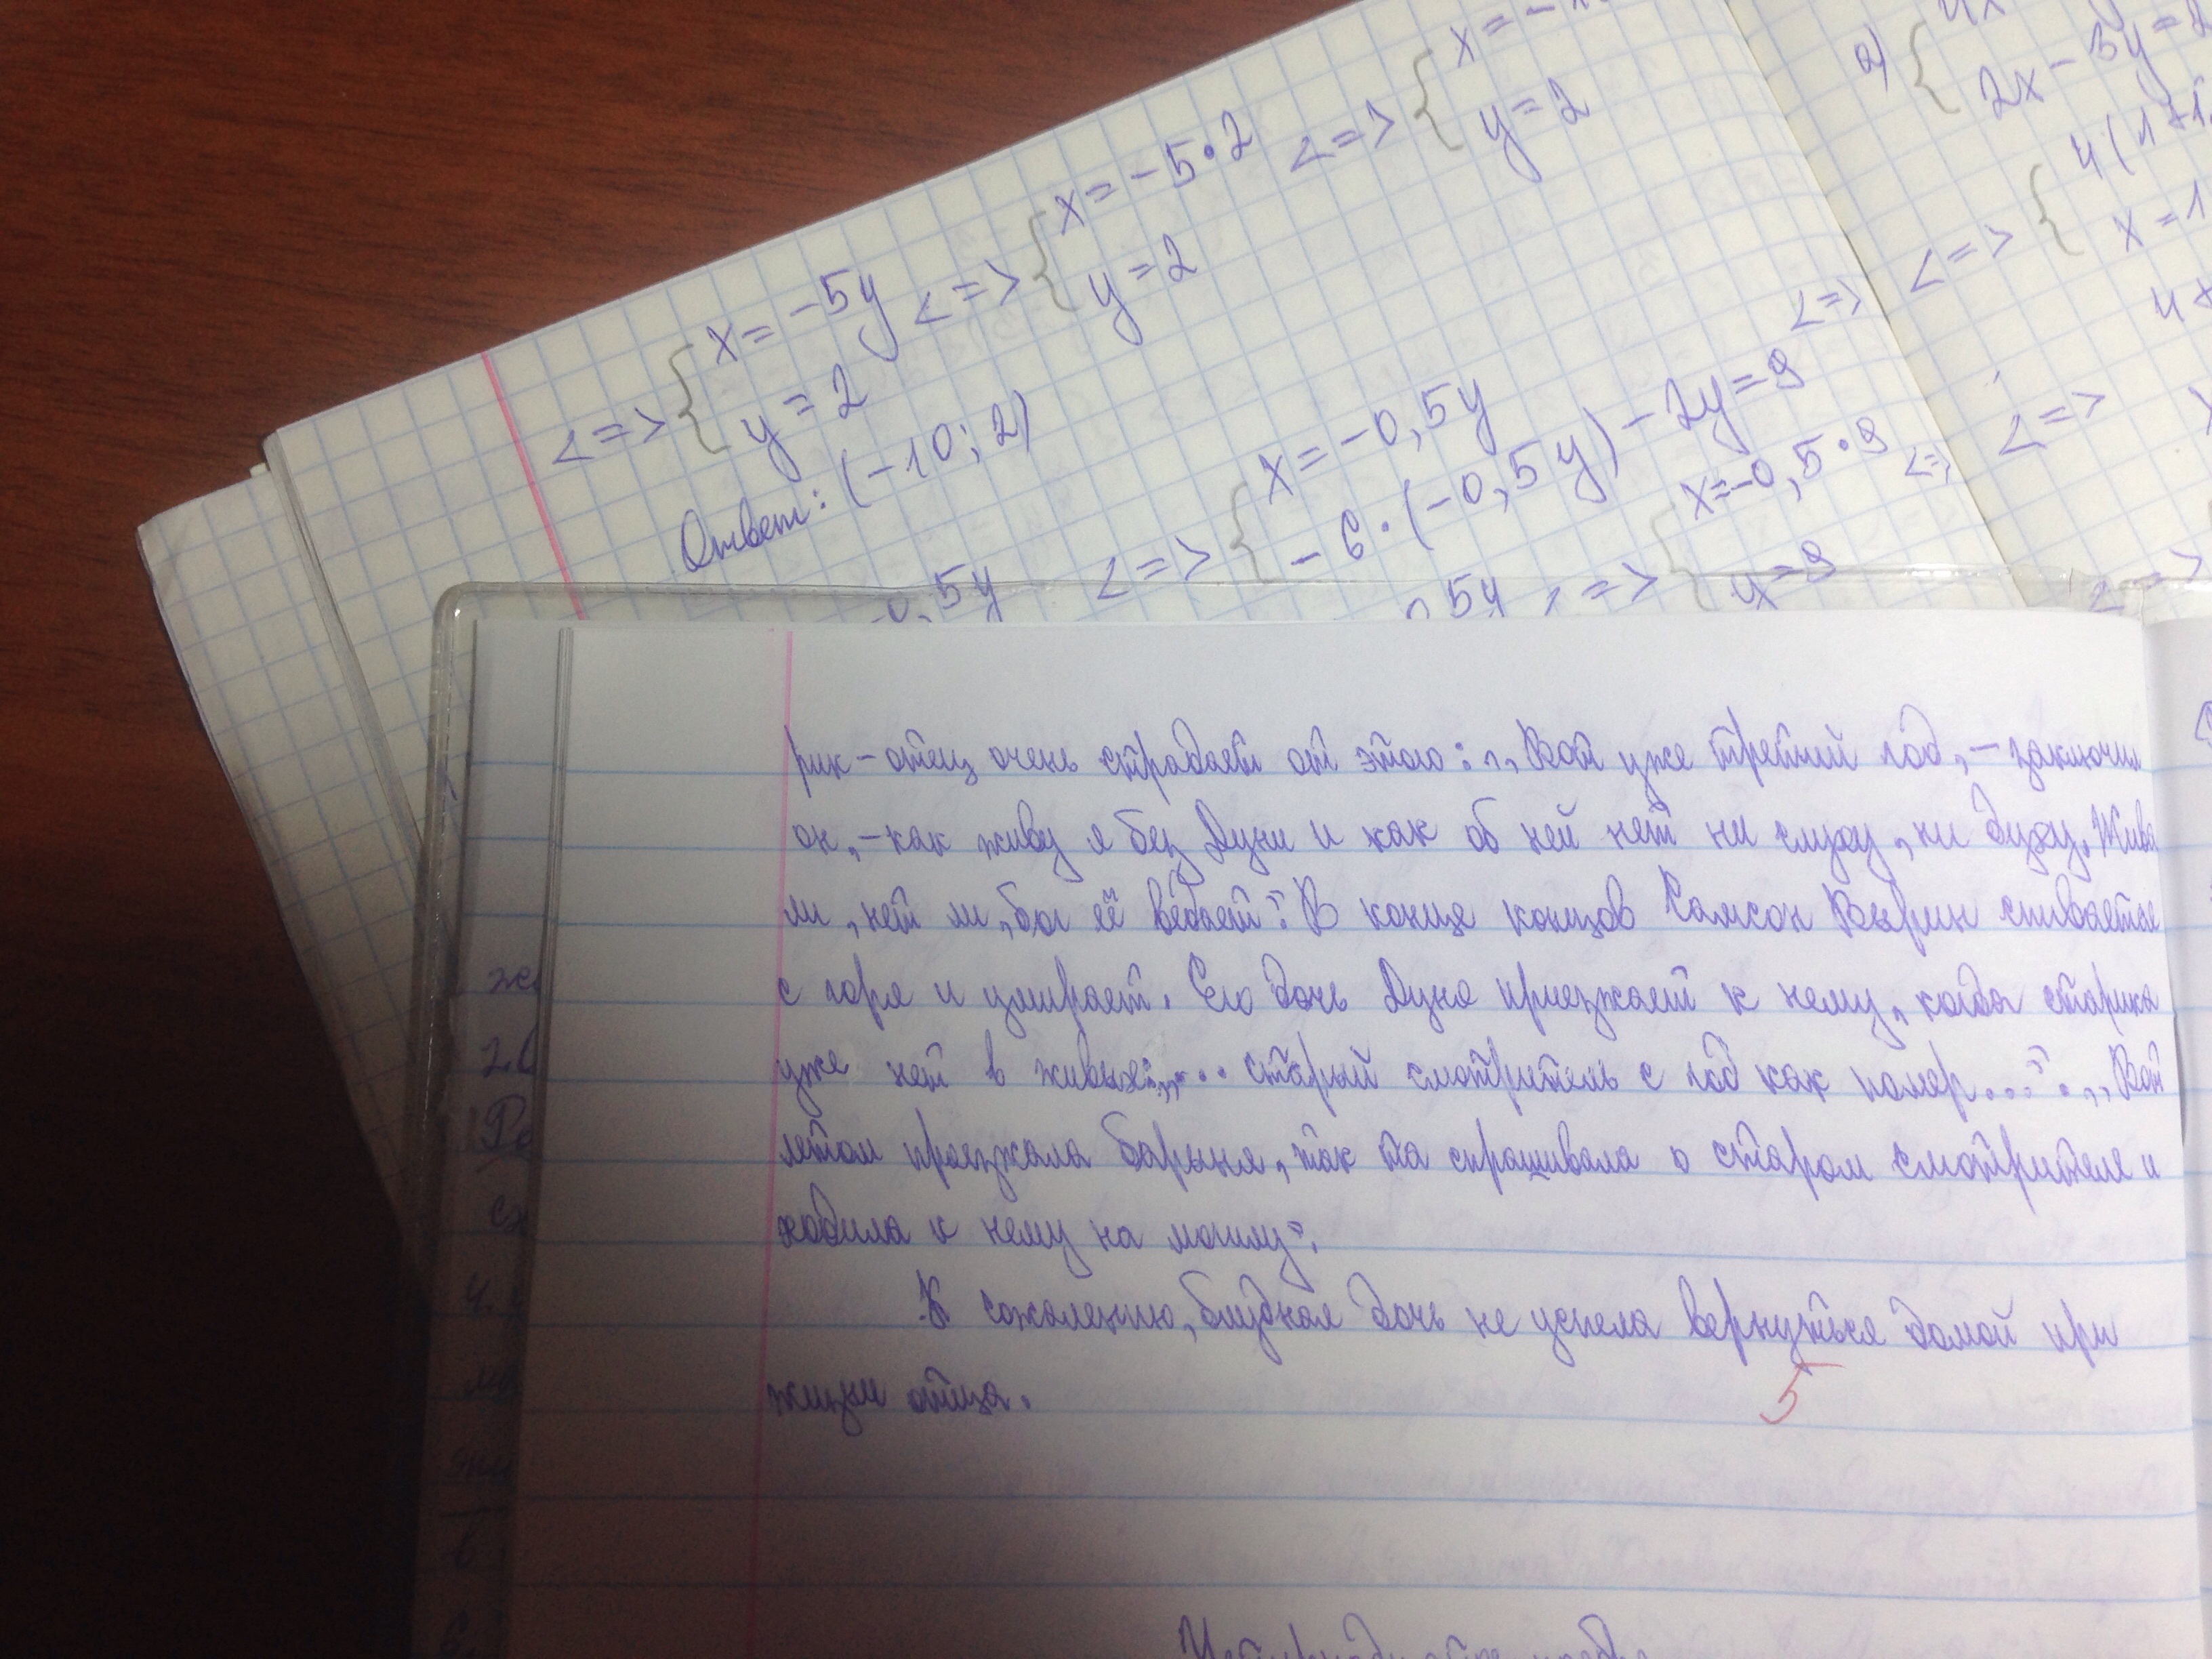 <=> { x = -5y <=> { x = -5·2 <=> { x = -
y = 2 y = 2 y = 2
Ответ: (-10; 2)
<=> { x = -0,5y
-6·(-0,5y) - 2y = 9 <=>
0,5y 5y <=> { x = -0,5·9 <=>
y = 9
2) {
2x - 3y =
<=> { 4(1+1,
x = 1
<=>
<=>
рик - отец очень страдает от этого: „Вот уже третий год, - заключил
он, - как живу я без Дуни и как об ней нет ни слуху, ни духу. Жива
ли, нет ли, бог её ведает". В конце концов Самсон Вырин спивается
с горя и умирает. Его дочь Дуня приезжает к нему, когда старика
уже нет в живых: „... старый смотритель с год как помер...". „Вот
летом проезжала барыня, так та спрашивала о старом смотрителе и
ходила к нему на могилу".
К сожалению, блудная дочь не успела вернуться домой при
жизни отца.
5